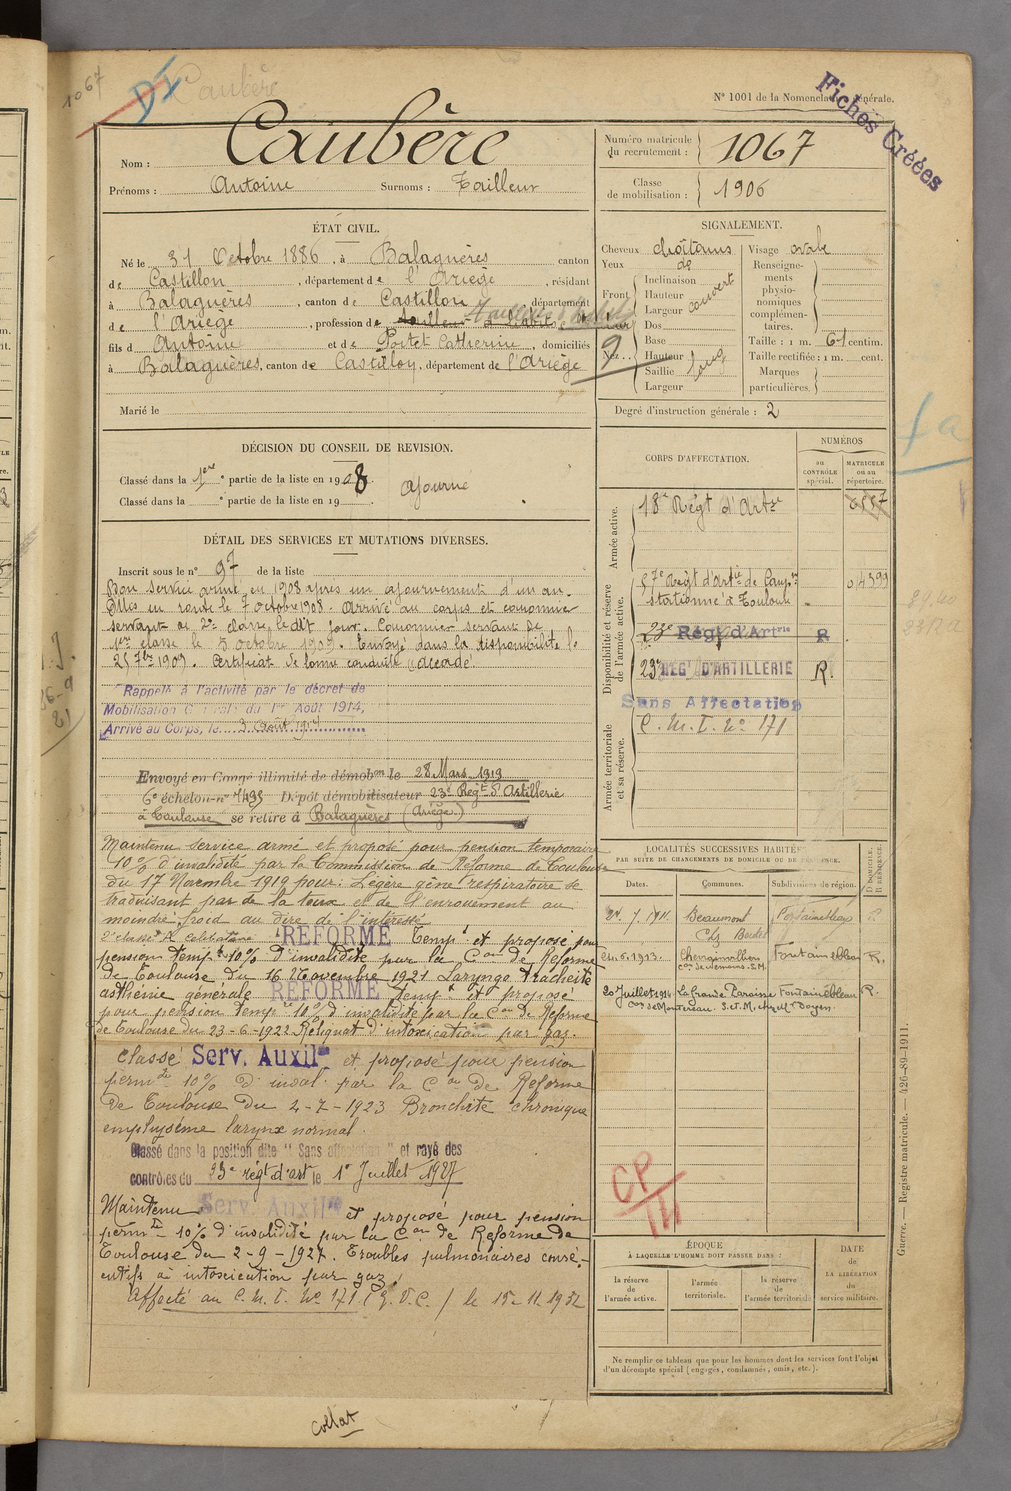 1067
N° 1001 de la Nomenclature générale.
Fiches Créées
Nom : Caubère
Prénoms : Antoine Surnoms : Tailleur
Numéro matricule du recrutement : 1067
Classe de mobilisation : 1906
ÉTAT CIVIL.
Né le 31 Octobre 1886, à Balaguères canton
de Castillon, département de l'Ariège, résidant
à Balaguères, canton de Castillon, département
de l'Ariège, profession de tailleur d'habits
fils d Antoine et de Portet Catherine, domiciliés
à Balaguères, canton de Castillon, département de l'Ariège
Marié le
SIGNALEMENT.
Cheveux châtains
Yeux de
Front Inclinaison
Hauteur
Largeur couvert
Nez Dos
Base
Hauteur
Saillie long
Largeur
Visage ovale
Renseignements physionomiques complémentaires.
Taille : 1 m. 61 centim.
Taille rectifiée : 1 m. cent.
Marques particulières.
Degré d'instruction générale : 2
DÉCISION DU CONSEIL DE REVISION.
Classé dans la 1ere partie de la liste en 1908
Classé dans la ° partie de la liste en 19
ajourné
DÉTAIL DES SERVICES ET MUTATIONS DIVERSES.
Inscrit sous le n° 97 de la liste
Bon service armé en 1908 après un ajournement d'un an.
Mis en route le 7 octobre 1908. Arrivé au corps et canonnier
servant de 2e classe le dit jour. Canonnier servant de
1re classe le 5 octobre 1909. Envoyé dans la disponibilité le
25 7bre 1909. Certificat de bonne conduite accordé.
Rappelé à l'activité par le décret de
Mobilisation Générale du 1er Août 1914,
Arrivé au Corps, le 3 Août 1914
Envoyé en Congé illimité de démobon le 28 Mars 1919
6e échelon n° 7435 Dépôt démobilisateur 23e Regt d'Artillerie
à Toulouse se retire à Balaguères (Ariège)
Maintenu service armé et proposé pour pension temporaire
10% d'invalidité par la Commission de Réforme de Toulouse
du 17 Novembre 1919 pour : Légère gêne respiratoire se
traduisant par de la toux et de l'enrouement au
moindre froid au dire de l'intéressé
2e classe A Célibataire RÉFORMÉ Tempt et proposé pour
pension temp. 10% d'invalidité par la Con de Réforme
de Toulouse du 16 Novembre 1921 Laryngo trachéite
asthénie générale RÉFORMÉ tempt et proposé
pour pension temp. 10% d'invalidité par la Con de Réforme
de Toulouse du 23-6-1922 Reliquat d'intoxication par gaz.
Classé Serv. Auxil. et proposé pour pension
permte 10% d'inval. par la Con de Réforme
de Toulouse du 2-7-1923 Bronchite chronique
emphysème larynx normal.
Classé dans la position dite "Sans affectation" et rayé des
contrôles du 23e régt d'art le 1er Juillet 1927
Maintenu Serv. Auxil. et proposé pour pension
perm. 10% d'invalidité par la Con de Réforme de
Toulouse du 2-9-1927. Troubles pulmonaires consé-
cutifs à intoxication par gaz.
Affecté au C.M.I. No 171 le 15-11-1932
CORPS D'AFFECTATION.
NUMÉROS
au CONTRÔLE spécial.
MATRICULE ou au répertoire.
Armée active.
18e Régt d'Artie
Disponibilité et réserve de l'armée active.
57e Régt d'Artie de Campne
stationné à Toulouse
04399
23e Régt d'Artrie R
23e REGt D'ARTILLERIE R.
Sans Affectation
Armée territoriale et sa réserve.
C.M.I. No 171
LOCALITÉS SUCCESSIVES HABITÉES
PAR SUITE DE CHANGEMENTS DE DOMICILE OU DE RÉSIDENCE.
Dates. Communes. Subdivisions de région. D DOMICILE. R RÉSIDENCE.
24.7.1911. Beaumont Fontainebleau R.
24.6.1913. Fontainebleau R.
20 Juillet 1914 La Grande Paroisse Fontainebleau R.
Con de Montereau. S.et M. chez Mr Doyen.
CP/14
ÉPOQUE
À LAQUELLE L'HOMME DOIT PASSER DANS :
la réserve de l'armée active.
l'armée territoriale.
la réserve de l'armée territoriale
DATE de LA LIBÉRATION du service militaire.
Ne remplir ce tableau que pour les hommes dont les services font l'objet
d'un décompte spécial (engagés, condamnés, omis, etc.).
Guerre. — Registre matricule. — 426-89-1911.